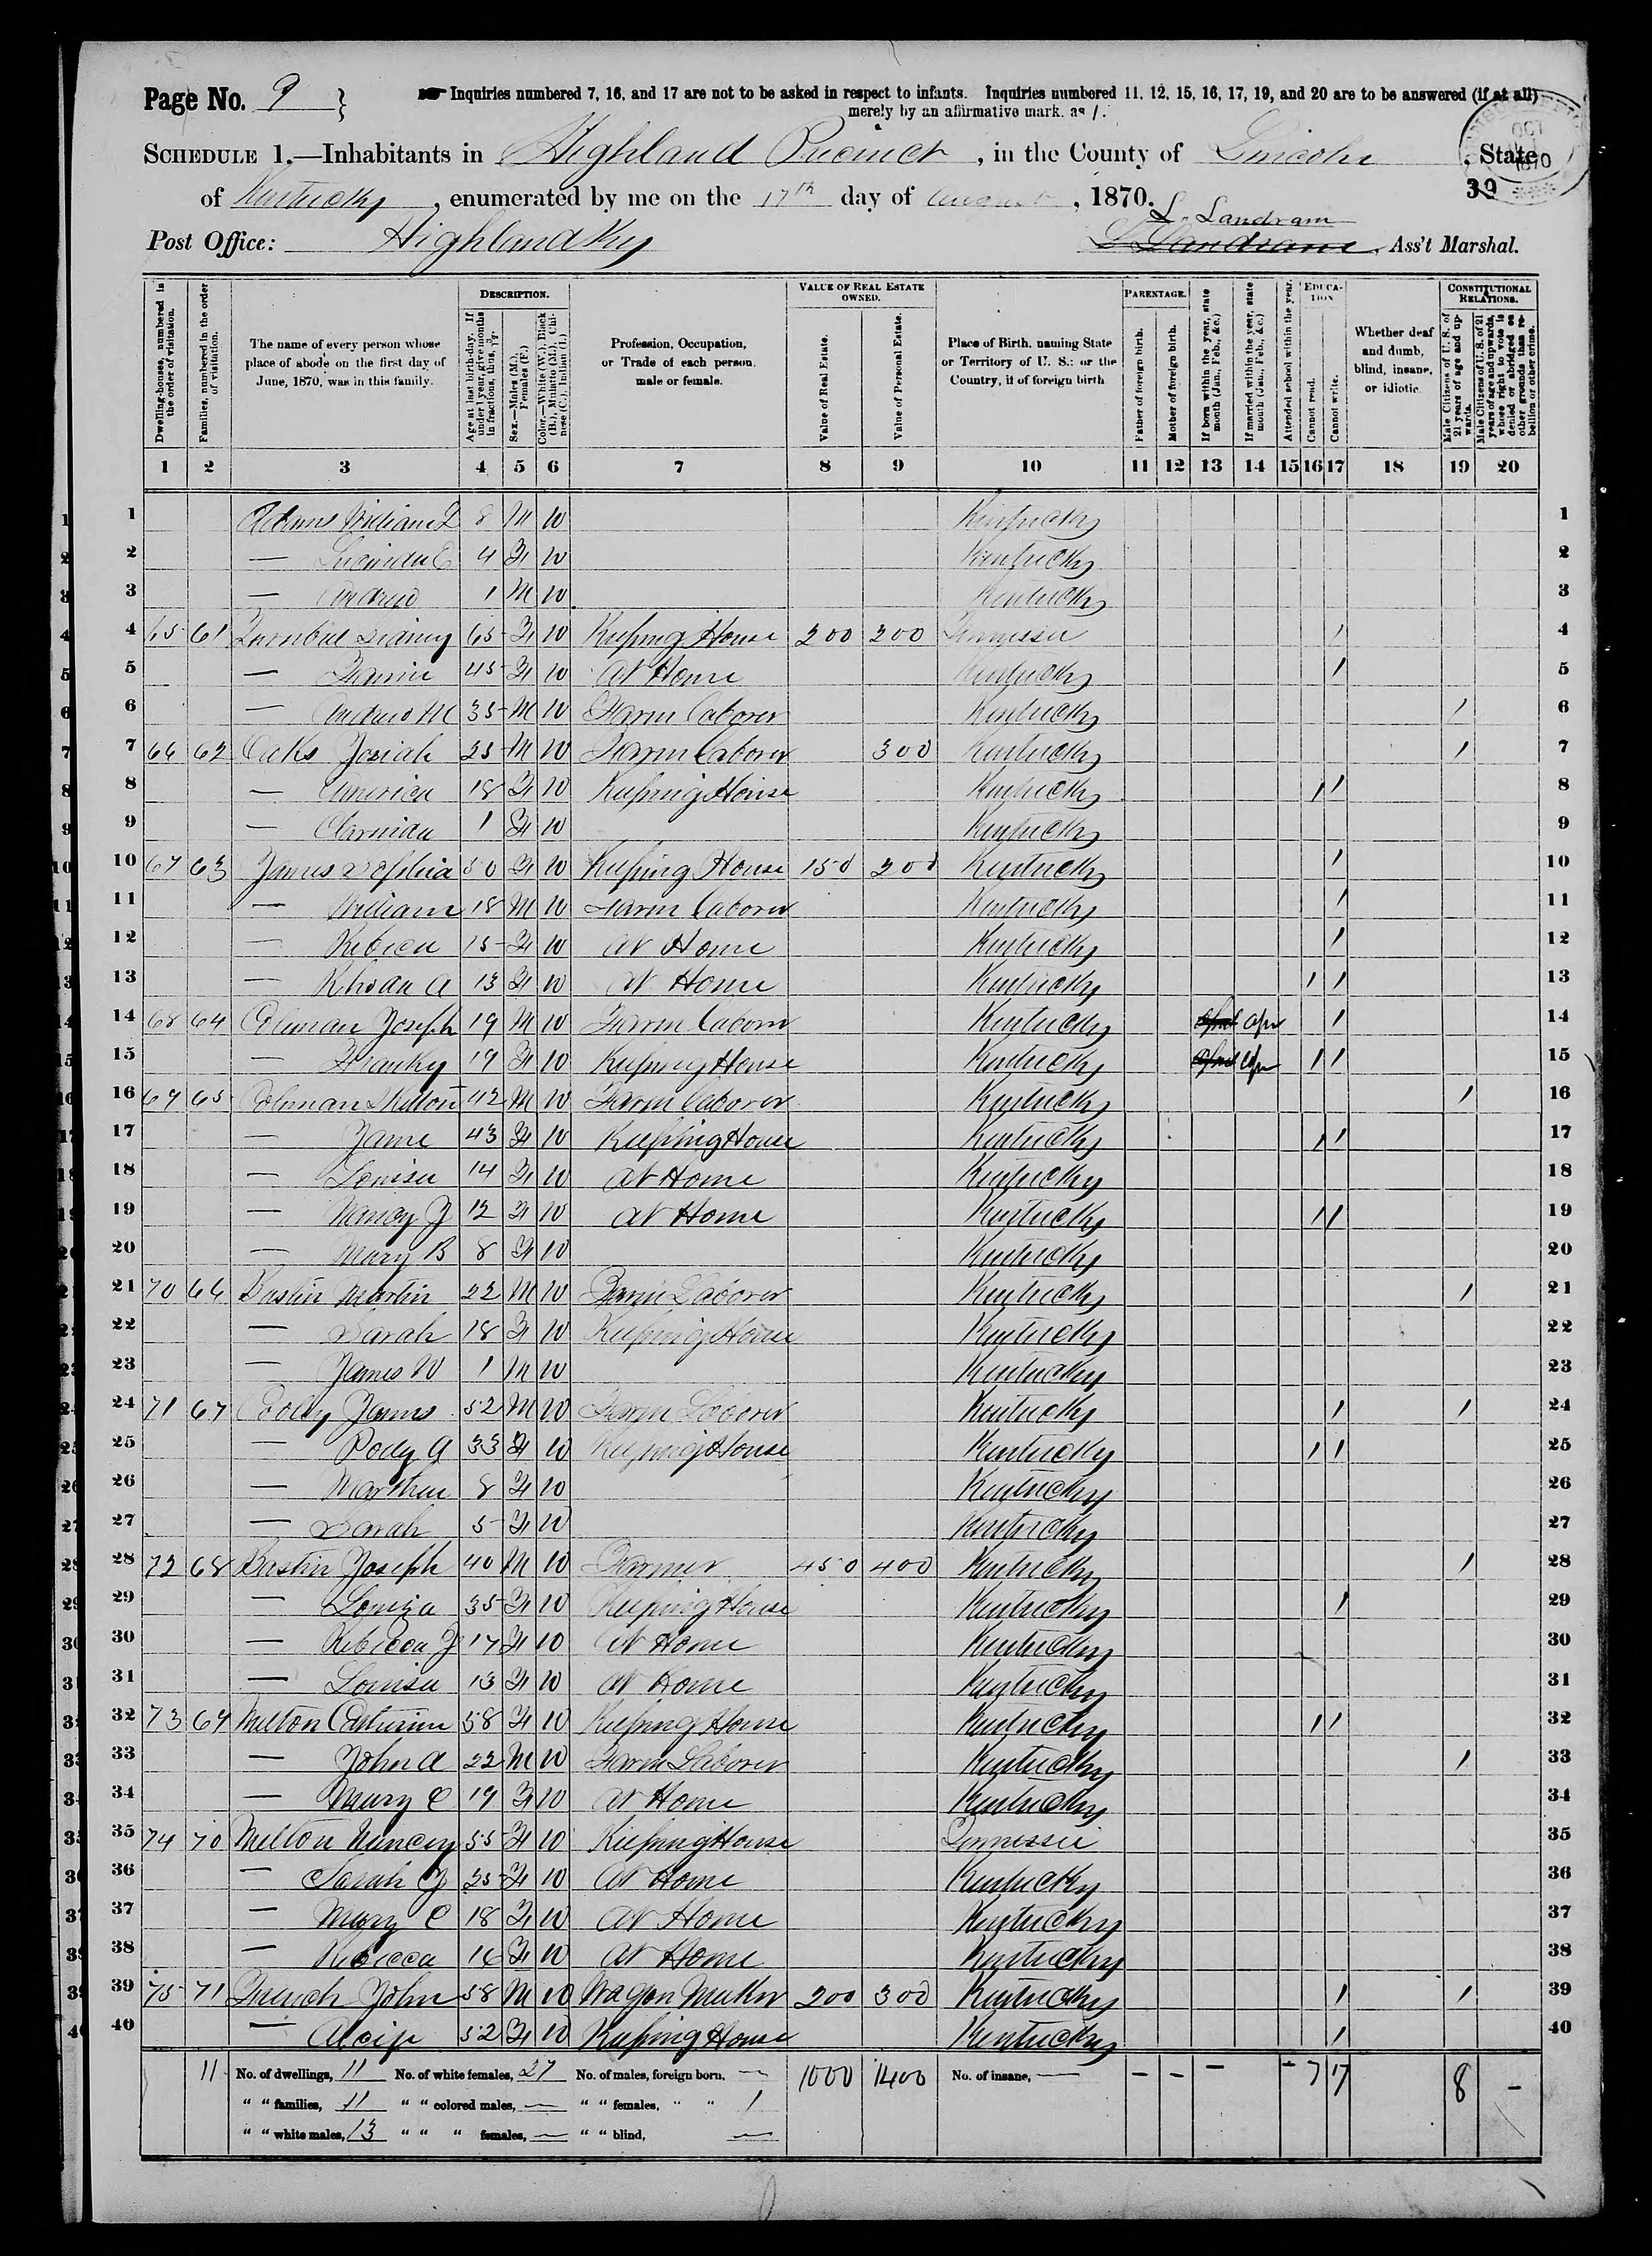 Page No. 9 } Inquiries numbered 7, 16, and 17 are not to be asked in respect to infants. Inquiries numbered 11, 12, 15, 16, 17, 19, and 20 are to be answered (if at all)
merely by an affirmative mark, as /.
SCHEDULE 1.—Inhabitants in Highland Precinct, in the County of Lincoln, State
of Kentucky, enumerated by me on the 17th day of August, 1870.
OCT 1870
39
L. Landram
Post Office: Highland Ky L Landram, Ass't Marshal.
Dwelling-houses, numbered in the order of visitation.
Families, numbered in the order of visitation.
The name of every person whose place of abode on the first day of June, 1870, was in this family.
DESCRIPTION.
Age at last birth-day. If under 1 year, give months in fractions, thus, 3/12.
Sex.—Males (M.), Females (F.)
Color.—White (W.), Black (B.), Mulatto (M.), Chinese (C.), Indian (I.)
Profession, Occupation, or Trade of each person, male or female.
VALUE OF REAL ESTATE OWNED.
Value of Real Estate.
Value of Personal Estate.
Place of Birth, naming State or Territory of U. S.; or the Country, if of foreign birth.
PARENTAGE.
Father of foreign birth.
Mother of foreign birth.
If born within the year, state month (Jan., Feb., &c.)
If married within the year, state month (Jan., Feb., &c.)
EDUCATION
Attended school within the year.
Cannot read.
Cannot write.
Whether deaf and dumb, blind, insane, or idiotic.
CONSTITUTIONAL RELATIONS.
Male Citizens of U. S. of 21 years of age and upwards.
Male Citizens of U. S. of 21 years of age and upwards, whose right to vote is denied or abridged on other grounds than rebellion or other crime.
1 2 3 4 5 6 7 8 9 10 11 12 13 14 15 16 17 18 19 20
1 Adams William L 8 M W Kentucky 1
2 — Lucinda E 4 F W Kentucky 2
3 — Andrew 1 M W Kentucky 3
4 65 61 Turnbul 65 F W Keeping House 200 200 Tennessee / 4
5 — Fannie 45 F W At Home Kentucky / 5
6 — Andrew M 35 M W Farm Laborer Kentucky / 6
7 66 62 Oaks Josiah 25 M W Farm Laborer 300 Kentucky / 7
8 — America 18 F W Keeping House Kentucky / / 8
9 — 1 F W Kentucky 9
10 67 63 James Sophia 50 F W Keeping House 150 200 Kentucky / 10
11 — William 18 M W Farm Laborer Kentucky / 11
12 — Rebica 15 F W At Home Kentucky / 12
13 — Rhoda A 13 F W At Home Kentucky / / 13
14 68 64 Coleman Joseph 19 M W Farm Laborer Kentucky Apr / 14
15 — Franky 19 F W Keeping House Kentucky Apr / / 15
16 69 65 Coleman Skelton 42 M W Farm Laborer Kentucky / 16
17 — Jane 43 F W Keeping House Kentucky / / 17
18 — Louisa 14 F W At Home Kentucky 18
19 — Nancy J 12 F W At Home Kentucky / / 19
20 — Mary B 8 F W Kentucky 20
21 70 66 Bastin Martin 22 M W Farm Laborer Kentucky / 21
22 — Sarah 18 F W Keeping House Kentucky 22
23 — James W 1 M W Kentucky 23
24 71 67 Cooley James 52 M W Farm Laborer Kentucky / / 24
25 — Pody A 33 F W Keeping House Kentucky / / 25
26 — Marthia 8 F W Kentucky 26
27 — Sarah 5 F W Kentucky 27
28 72 68 Bastin Joseph 40 M W Farmer 450 400 Kentucky / 28
29 — Louiza 35 F W Keeping House Kentucky / 29
30 — Rebecca J 17 F W At Home Kentucky 30
31 — Louisa 13 F W At Home Kentucky 31
32 73 69 Melton Catherine 58 F W Keeping House Kentucky / / 32
33 — John A 22 M W Farm Laborer Kentucky / 33
34 — Mary E 19 F W At Home Kentucky 34
35 74 70 Melton Nancy 55 F W Keeping House Tennessee 35
36 — Sarah J 25 F W At Home Kentucky 36
37 — Mary E 18 F W At Home Kentucky 37
38 — Rebecca 16 F W At Home Kentucky 38
39 75 71 French John 58 M W Wagon Maker 200 300 Kentucky / / 39
40 — 52 F W Keeping House Kentucky / 40
11 No. of dwellings, 11 No. of white females, 27 No. of males, foreign born, — 1000 1400 No. of insane, — – – – – 7 17 8 –
" " families, 11 " " colored males, — " " females, " " 1
" " white males, 13 " " " females, — " " blind, —